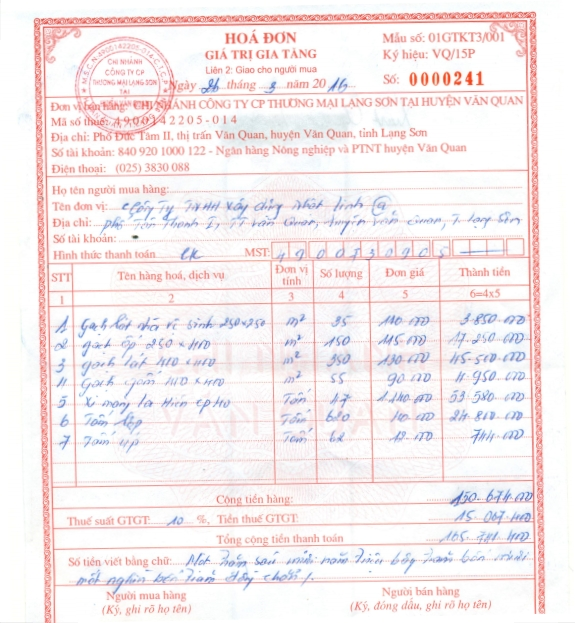 HOÁ ĐƠN
GIÁ TRỊ GIA TĂNG
Liên 2: Giao cho người mua
Mẫu số: 01GTKT3/001
Ký hiệu: VQ/15P
Số: 0000241
CHI NHÁNH
CÔNG TY CP
THƯƠNG MẠI LẠNG SƠN
TẠI
Ngày 26 tháng 3 năm 2016
Đơn vị bán hàng: CHI NHÁNH CÔNG TY CP THƯƠNG MẠI LẠNG SƠN TẠI HUYỆN VĂN QUAN
Mã số thuế: 4900142205-014
Địa chỉ: Phố Đức Tâm II, thị trấn Văn Quan, huyện Văn Quan, tỉnh Lạng Sơn
Số tài khoản: 840 920 1000 122 - Ngân hàng Nông nghiệp và PTNT huyện Văn Quan
Điện thoại: (025) 3830 088
Họ tên người mua hàng:
Tên đơn vị: Công Ty TNHH xây dựng Nhật Linh
Địa chỉ: phố Tân Thanh I, TT Văn Quan, huyện Văn Quan, T. Lạng Sơn
Số tài khoản:
Hình thức thanh toán CK MST: 4900730905
STT Tên hàng hoá, dịch vụ Đơn vị tính Số lượng Đơn giá Thành tiền
1 2 3 4 5 6=4x5
1 Gạch lát nhà vệ sinh 250x250 m² 35 110 000 3.850.000
2 gạch ốp 250x400 m² 150 115 000 17.250.000
3 gạch lát 400x400 m² 350 130 000 45.500.000
4 Gạch gốm 400x400 m² 55 90 000 4.950.000
5 Xi măng La Hiên CP40 Tấn 47 1.140.000 53.580.000
6 Tấm lợp Tấm 620 40 000 24.800.000
7 Tấm úp Tấm 62 12 000 744.000
Cộng tiền hàng: 150.674.000
Thuế suất GTGT: 10 %, Tiền thuế GTGT: 15.067.400
Tổng cộng tiền thanh toán 165.741.400
Số tiền viết bằng chữ: Một trăm sáu mươi năm triệu bảy trăm bốn mươi
một nghìn bốn trăm đồng chẵn /.
Người mua hàng Người bán hàng
(Ký, ghi rõ họ tên) (Ký, đóng dấu, ghi rõ họ tên)